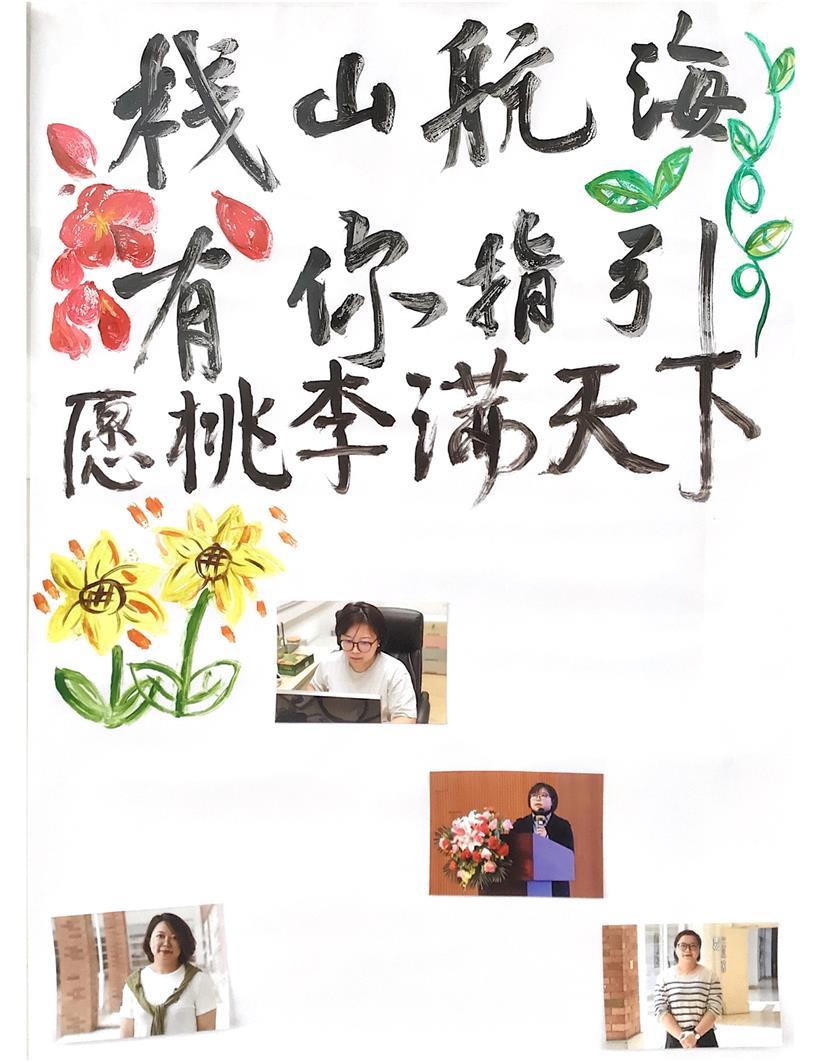 栈山航海
有你指引
愿桃李满天下